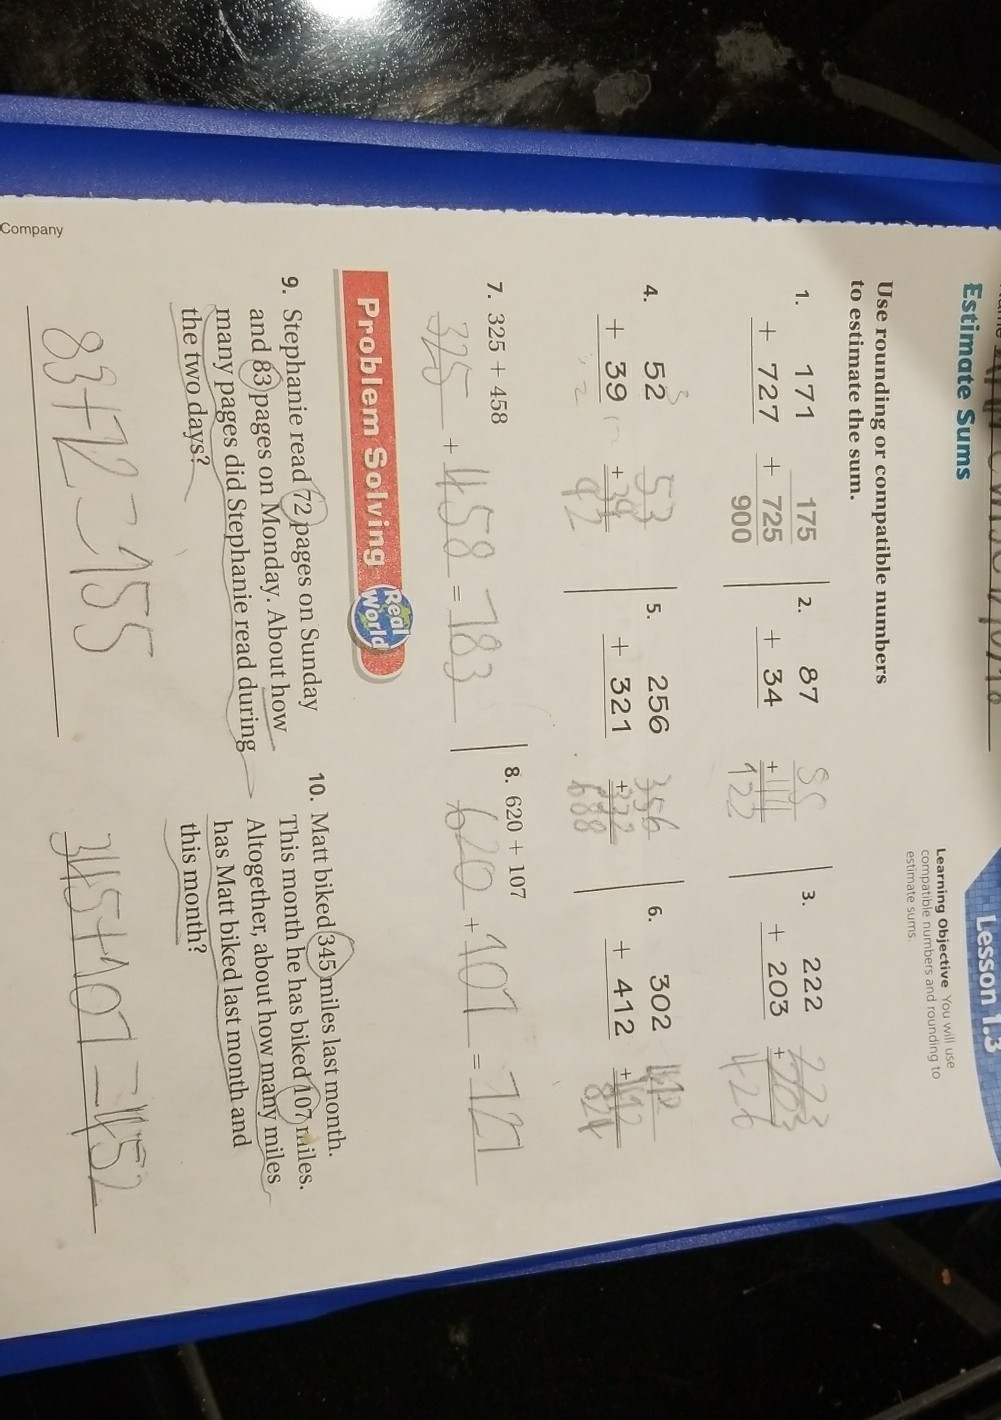 Lesson 1.3
Estimate Sums
Learning Objective You will use
compatible numbers and rounding to
estimate sums.
Use rounding or compatible numbers
to estimate the sum.
1. 171 175
+ 727 + 725
900
2. 87
+ 34
123
3. 222 223
+ 203 + 203
426
4. 52 53
+ 39 + 39
92
5. 256 356
+ 321 + 332
688
6. 302 412
+ 412 + 412
824
7. 325 + 458
325 + 458 = 783
8. 620 + 107
620 + 107 = 727
Problem Solving Real World
9. Stephanie read 72 pages on Sunday
and 83 pages on Monday. About how
many pages did Stephanie read during
the two days?
83+72=155
10. Matt biked 345 miles last month.
This month he has biked 107 miles.
Altogether, about how many miles
has Matt biked last month and
this month?
345+107=452
Company